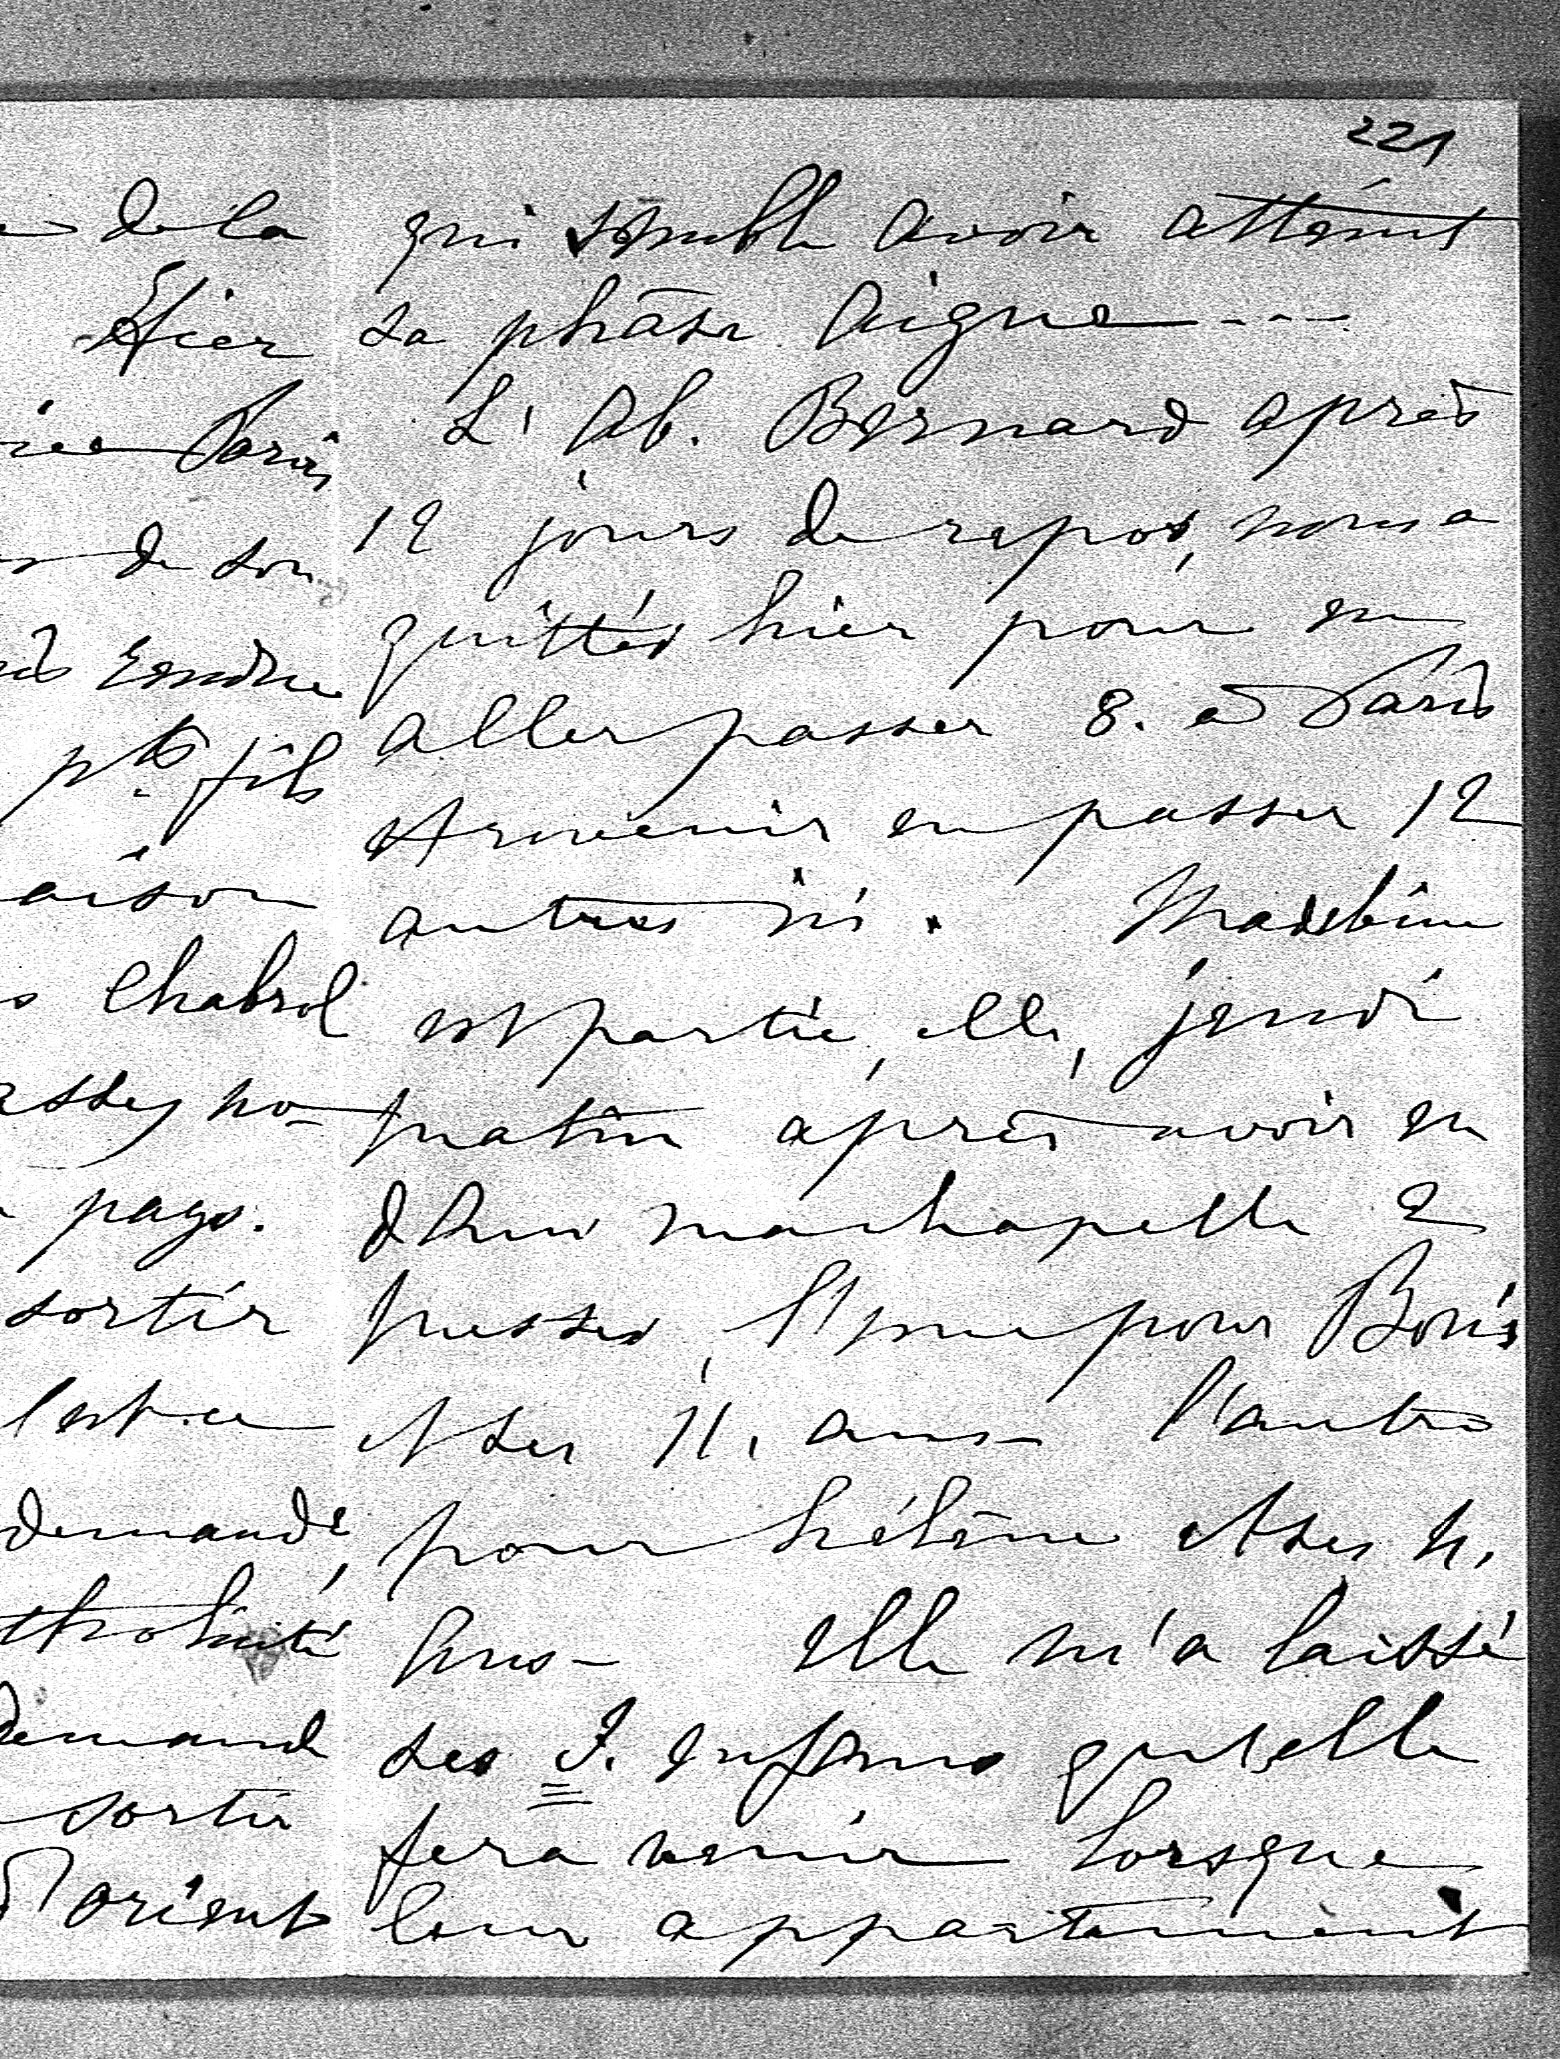 221
de la
Hier
Paris
de son
rendre
pts fils
aison
Chabrol
assez no-
pays.
sortir
est-ce
demandé,
demande
sortir
l'orient
qui semble avoir atteint
sa phase aigue ---
L'Ab. Bernard après
12 jours de repos, nous a
quittés hier pour en
aller passer 8. à Paris
et revenir en passer 12
autres ici. Madeleine
est partie, elle, jeudi
matin après avoir eu
dans ma chapelle 2
messes, l'une pour Boris
et ses 11. ans - l'autre
pour hélène et ses
ans - elle m'a laissé
ses 3. enfants qu'elle
fera venir lorsque
leur appartement